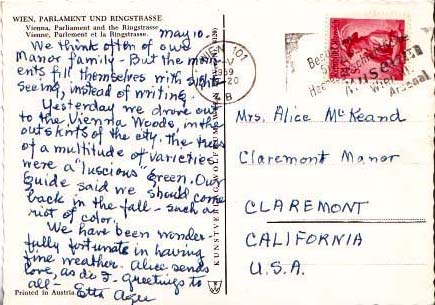 WIEN, PARLAMENT UND RINGSTRASSE
Vienna, Parliament and the Ringstrasse
Vienne, Parlement et la Ringstrasse
May 10.
We think often of our
Manor family - But the mom-
ents fill themselves with sight-
seeing, instead of writing.
Yesterday we drove out
to the Vienna Woods, in the
outskirts of the city. The trees
of a multitude of varieties
were a "luscious" green. Our
Guide said we should come
back in the fall - such a
riot of color.
We have been wonder-
fully fortunate in having
fine weather. Alice sends
love, as do I - Greetings to
all - Etta
Printed in Austria
WIEN 101
1959
-20
KUNSTVERLAG WOLFRUM
Mrs. Alice McKeand
Claremont Manor
CLAREMONT
CALIFORNIA
U.S.A.